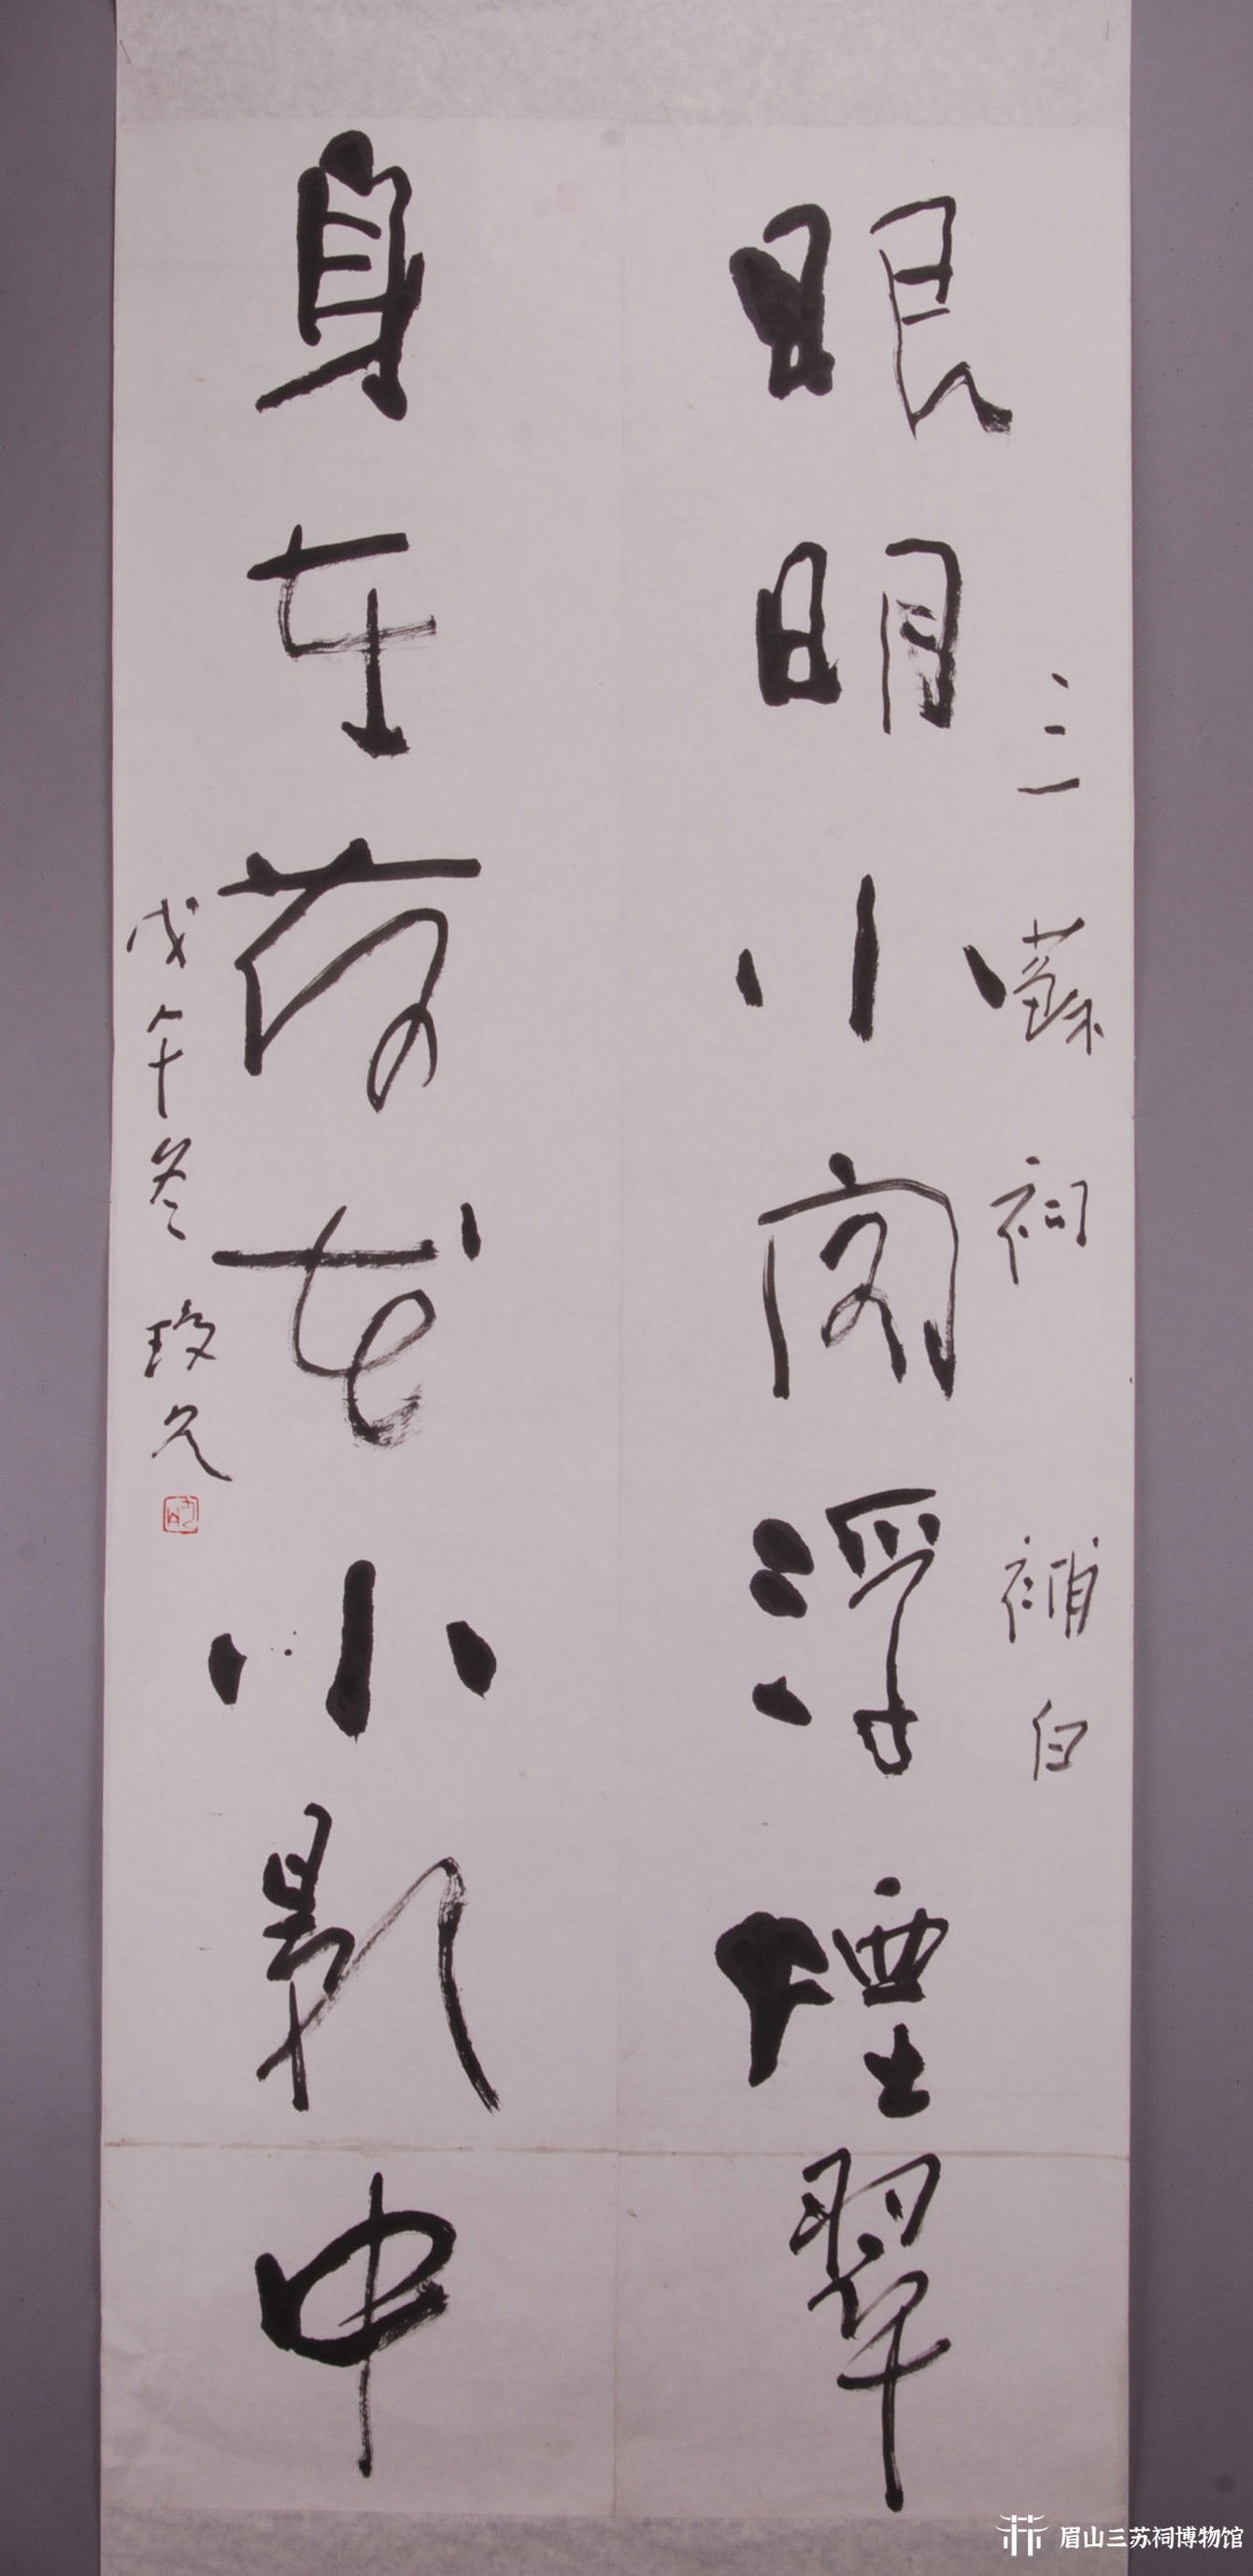 三蘇祠補白
眼明小閣浮煙翠
身在荷花小影中
戊午冬 玫久
眉山三苏祠博物馆